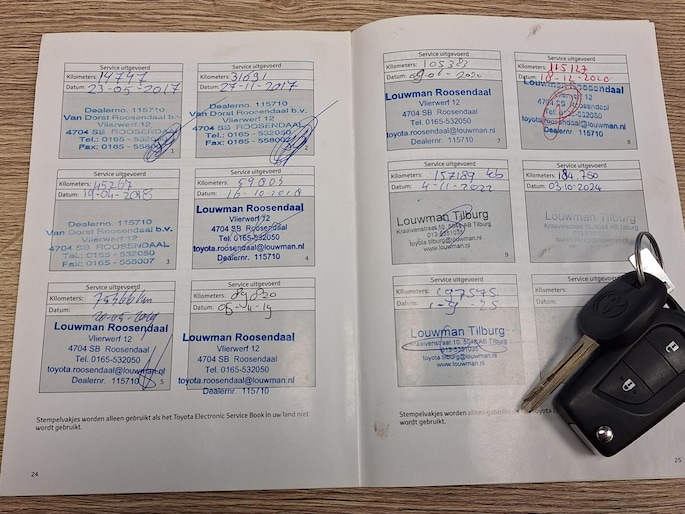 Service uitgevoerd
Kilometers: 14747
Datum: 23-05-2017
Dealerno. 115710
Van Dorst Roosendaal b.v.
Vlierwerf 12
4704 SB ROOSENDAAL
Tel.: 0165-532050
Fax: 0165 - 558007
1
Service uitgevoerd
Kilometers: 31691
Datum: 27-11-2017
Dealerno. 115710
Van Dorst Roosendaal b.v.
Vlierwerf 12
4704 SB ROOSENDAAL
Tel.: 0165-532050
Fax: 0165 - 558007
2
Service uitgevoerd
Kilometers: 45267
Datum: 19-04-2018
Dealerno. 115710
Van Dorst Roosendaal b.v.
Vlierwerf 12
4704 SB ROOSENDAAL
Tel.: 0165-532050
Fax: 0165 - 558007
3
Service uitgevoerd
Kilometers: 59003
Datum: 16-10-2018
Louwman Roosendaal
Vlierwerf 12
4704 SB Roosendaal
Tel. 0165-532050
toyota.roosendaal@louwman.nl
Dealernr. 115710
4
Service uitgevoerd
Kilometers:
Datum: 20-05-2019
Louwman Roosendaal
Vlierwerf 12
4704 SB Roosendaal
Tel. 0165-532050
toyota.roosendaal@louwman.nl
Dealernr. 115710
5
Service uitgevoerd
Kilometers: 89830
Datum: 05-11-19
Louwman Roosendaal
Vlierwerf 12
4704 SB Roosendaal
Tel. 0165-532050
toyota.roosendaal@louwman.nl
Dealernr. 115710
Stempelvakjes worden alleen gebruikt als het Toyota Electronic Service Book in uw land niet
wordt gebruikt.
24
Service uitgevoerd
Kilometers: 105383
Datum: 09-06-2020
Louwman Roosendaal
Vlierwerf 12
4704 SB Roosendaal
Tel. 0165-532050
toyota.roosendaal@louwman.nl
Dealernr. 115710
7
Service uitgevoerd
Kilometers: 115127
Datum: 18-12-2020
Louwman Roosendaal
Vlierwerf 12
4704 SB Roosendaal
toyota.roosendaal@louwman.nl
Dealernr. 115710
8
Service uitgevoerd
Kilometers: 157189
Datum: 4-11-2022
Louwman Tilburg
Kraaivenstraat 10, 5048 AB Tilburg
toyota.tilburg@louwman.nl
www.louwman.nl
9
Service uitgevoerd
Kilometers: 184.750
Datum: 03-10-2024
Louwman Tilburg
Kraaivenstraat 10, 5048 AB Tilburg
toyota.tilburg@louwman.nl
www.louwman.nl
Service uitgevoerd
Kilometers: 197575
Datum:
Louwman Tilburg
Kraaivenstraat 10, 5048 AB Tilburg
toyota.tilburg@louwman.nl
www.louwman.nl
Service uitgevoerd
Kilometers:
Datum:
Stempelvakjes worden alleen gebruikt als het Toyota
wordt gebruikt.
25